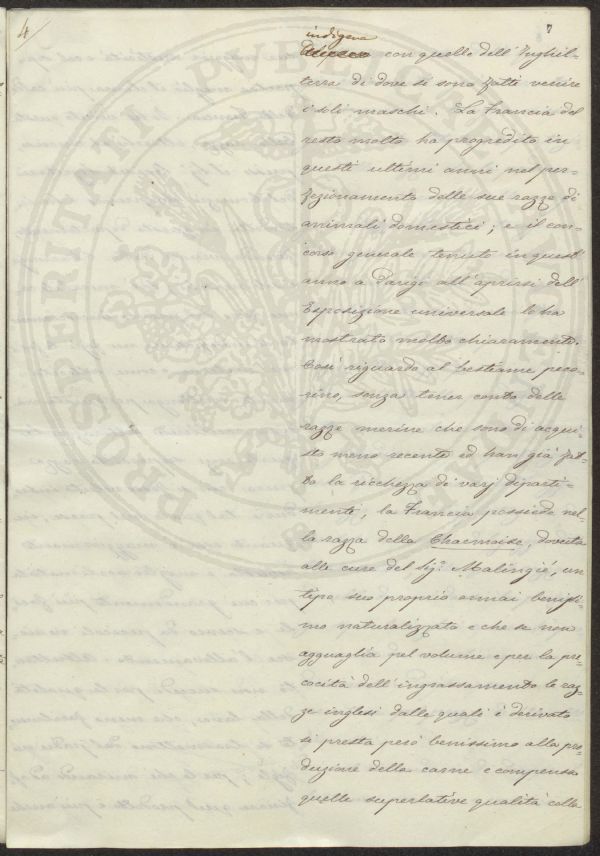 4/
7
indigena
con quelle dell'Inghil-
terra di dove si sono fatti venire
i soli maschi. La Francia del
resto molto ha progredito in
questi ultimi anni nel per-
fezionamento delle sue razze di
animali domestici; e il con-
corso generale tenuto in quest'
anno a Parigi all'aprirsi dell'
Esposizione universale lo ha
mostrato molto chiaramente.
Così riguardo al bestiame peco-
rino, senza tener conto delle
razze merine che sono di acqui-
sto meno recente ed han già fat-
to la ricchezza di varj diparti-
menti, la Francia possiede nel-
la razza della Charmoise, dovuta
alle cure del Sig.r Malingié, un
tipo suo proprio ormai benissi-
mo naturalizzato e che se non
agguaglia pel volume e per la pre-
cocità dell'ingrassamento le raz-
ze inglesi dalle quali è derivato
si presta però benissimo alla pro-
duzione della carne e compensa
quelle superlative qualità colla
PROSPERITATI PUBLICAE